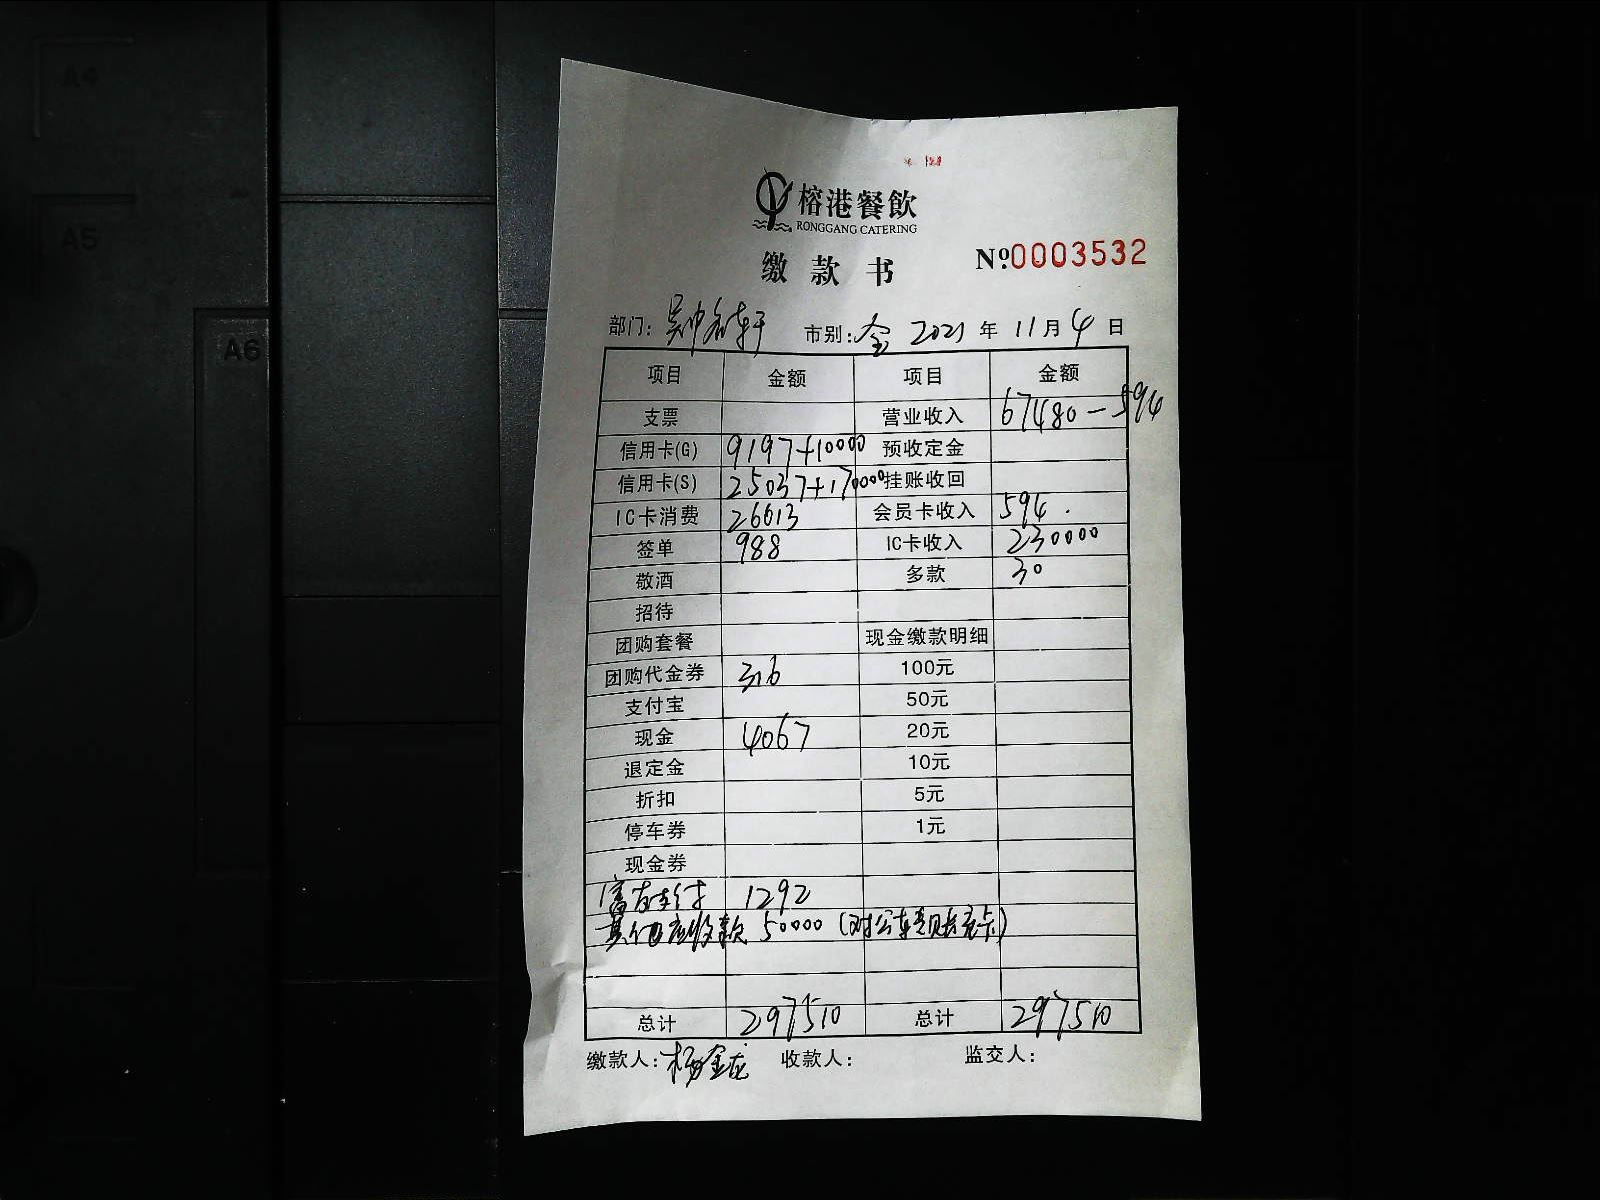 A4
A5
A6
榕港餐飲
RONGGANG CATERING
缴款书
Nº0003532
部门: 市别:全 2021年11月4日
项目 金额 项目 金额
支票 营业收入 67480-594
信用卡(G) 9197+10000 预收定金
信用卡(S) 25037+170000 挂账收回
IC卡消费 26613 会员卡收入 594.
签单 988 IC卡收入 230000
敬酒 多款 30
招待
团购套餐 现金缴款明细
团购代金券 316 100元
支付宝 50元
现金 4067 20元
退定金 10元
折扣 5元
停车券 1元
现金券
富友支付 1292
其他应收款 50000 (对公转账充卡)
总计 297510 总计 297510
缴款人:杨金龙 收款人: 监交人: